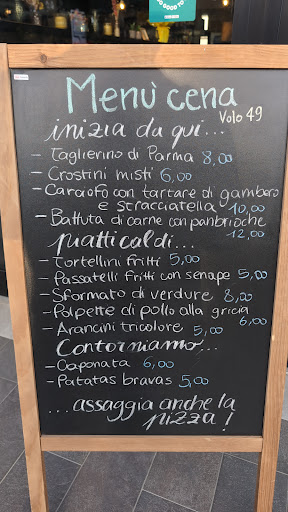 TOO GOOD TO
Menù cena
Volo 49
inizia da qui...
– Taglierino di Parma 8,00
– Crostini misti 6,00
– Carciofo con tartare di gambero
e stracciatella 10,00
– Battuta di carne con panbrioche
12,00
piatti caldi...
– Tortellini fritti 5,00
– Passatelli fritti con senape 5,00
– Sformato di verdure 8,00
– Polpette di pollo alla gricia
6,00
– Arancini tricolore 5,00
Contorniamo...
– Caponata 6,00
– Patatas bravas 5,00
...assaggia anche la
pizza!